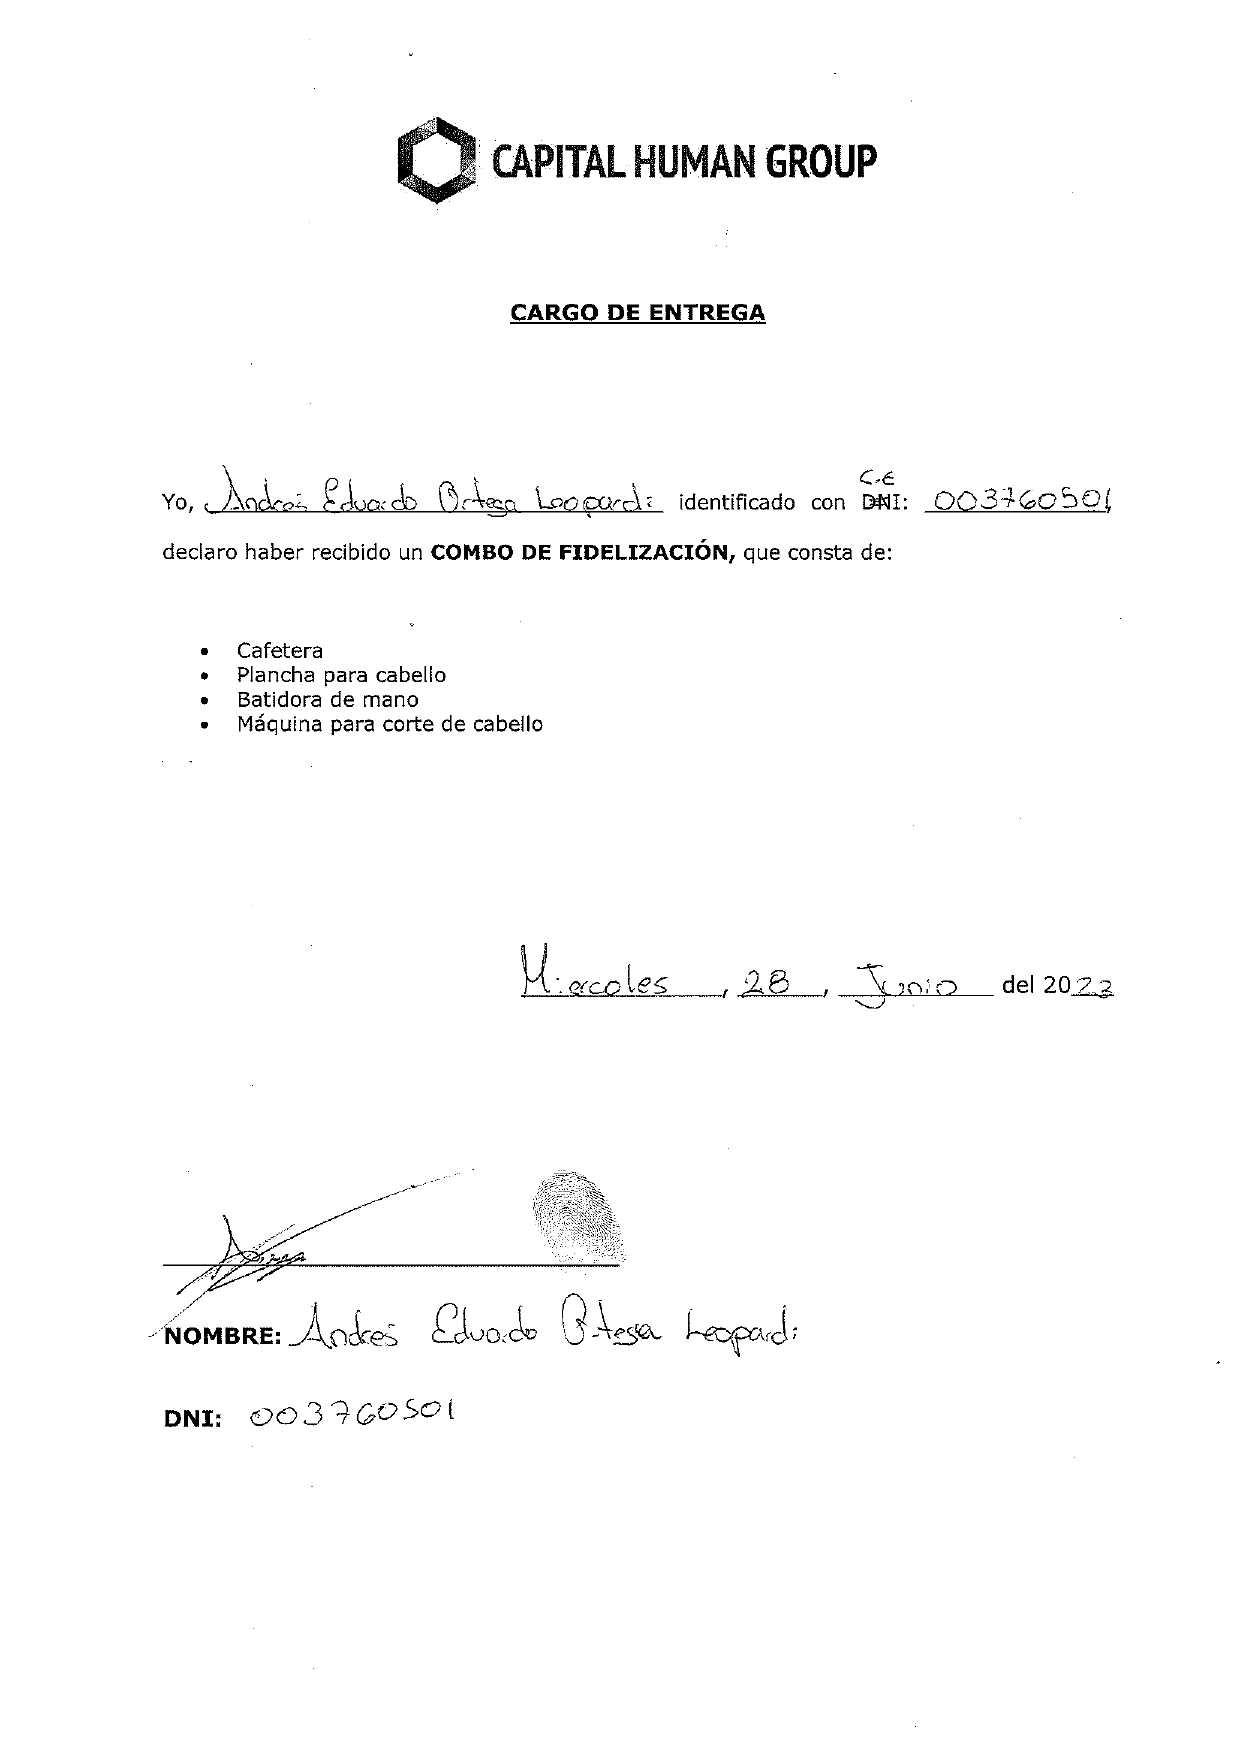 CAPITAL HUMAN GROUP
CARGO DE ENTREGA
C.E
Yo, Andres Eduardo Ortega Leopardi identificado con DNI: 003760501
declaro haber recibido un COMBO DE FIDELIZACIÓN, que consta de:
• Cafetera
• Plancha para cabello
• Batidora de mano
• Máquina para corte de cabello
Miercoles , 28 , Junio del 2023
NOMBRE: Andres Eduardo Ortega Leopardi
DNI: 003760501